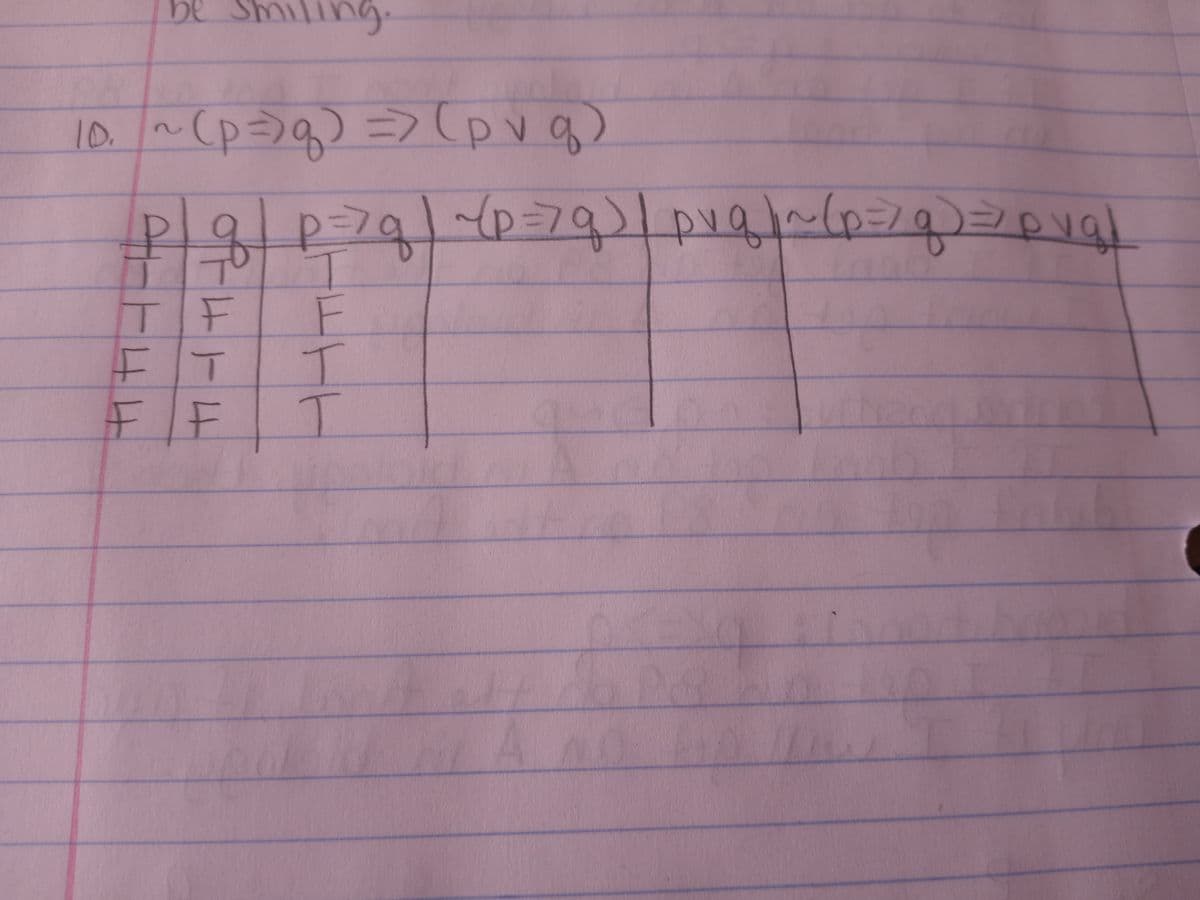 be smiling.
10. ~(p=>q) => (p v q)
p | q | p=>q | ~(p=>q) | pvq | ~(p=>q)=>pvq |
T | T | T
T | F | F
F | T | T
F | F | T